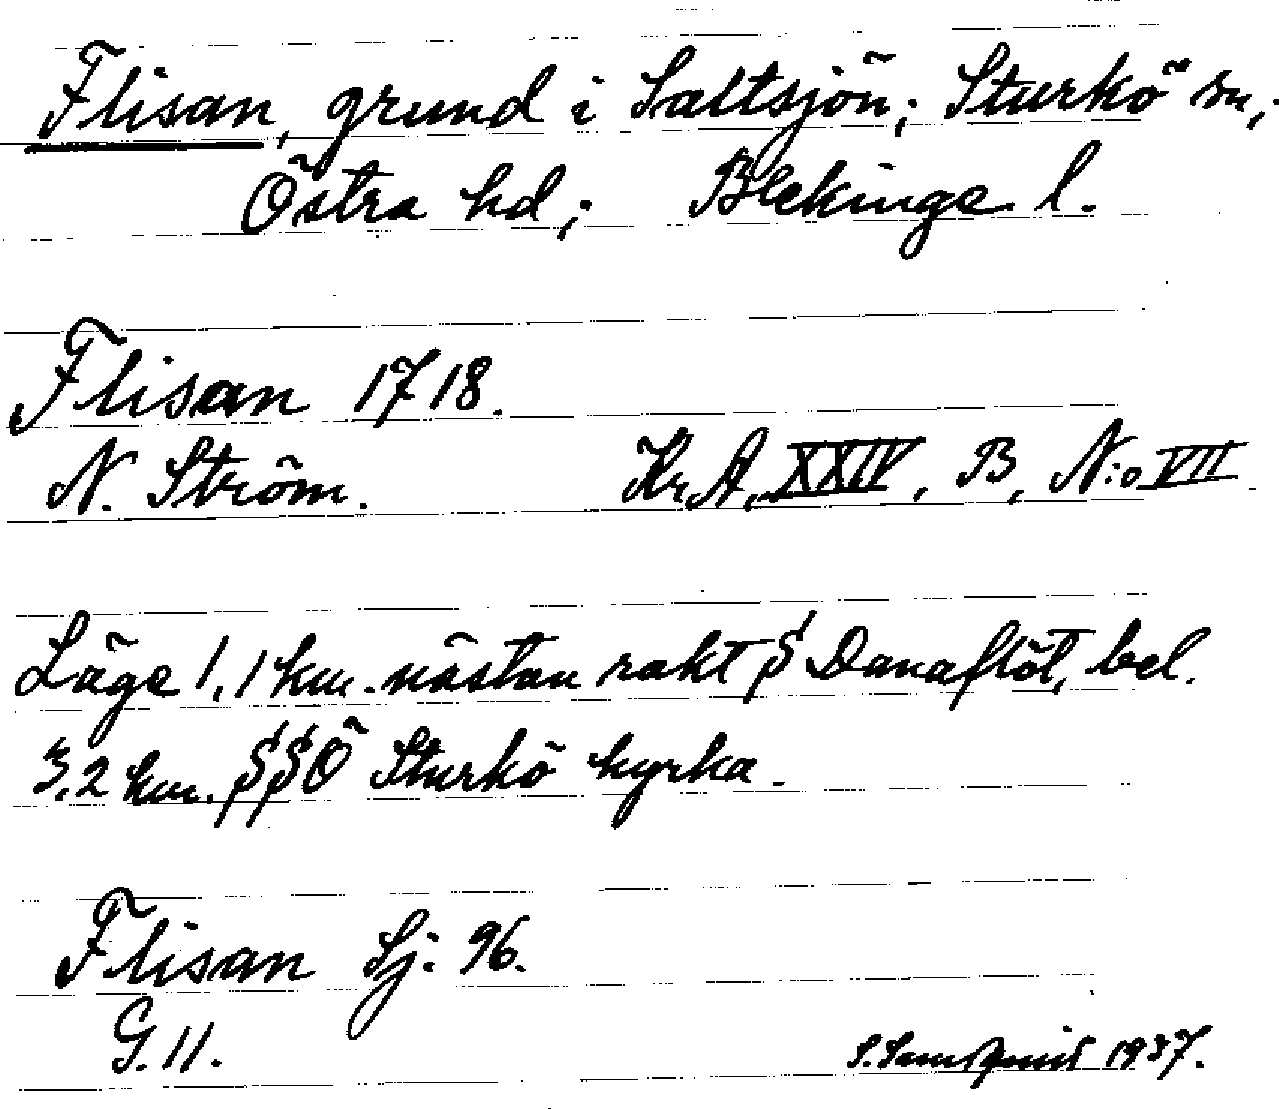 Flisan, grund i Saltsjön; Sturkö sn,;
Östra hd,; Blekinge l.
Flisan 1718.
N. Ström. Kr.A. XXIV, B, N:o VII
Läge 1,1 km. nästan rakt S Danaflöt, bel.
3,2 km. SSÖ Sturkö kyrka.
Flisan Sj: 96.
G. 11.
1937.